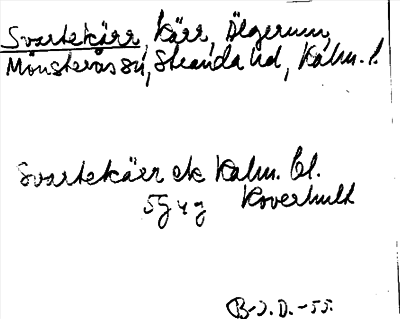 Svartekärr, Kärr, Älgerum,
Mönsterås sn, Stranda hd, Kalm. l.
Svartekärr ek Kalm. bl.
5g4g Koverhult
B-J. D. -55.